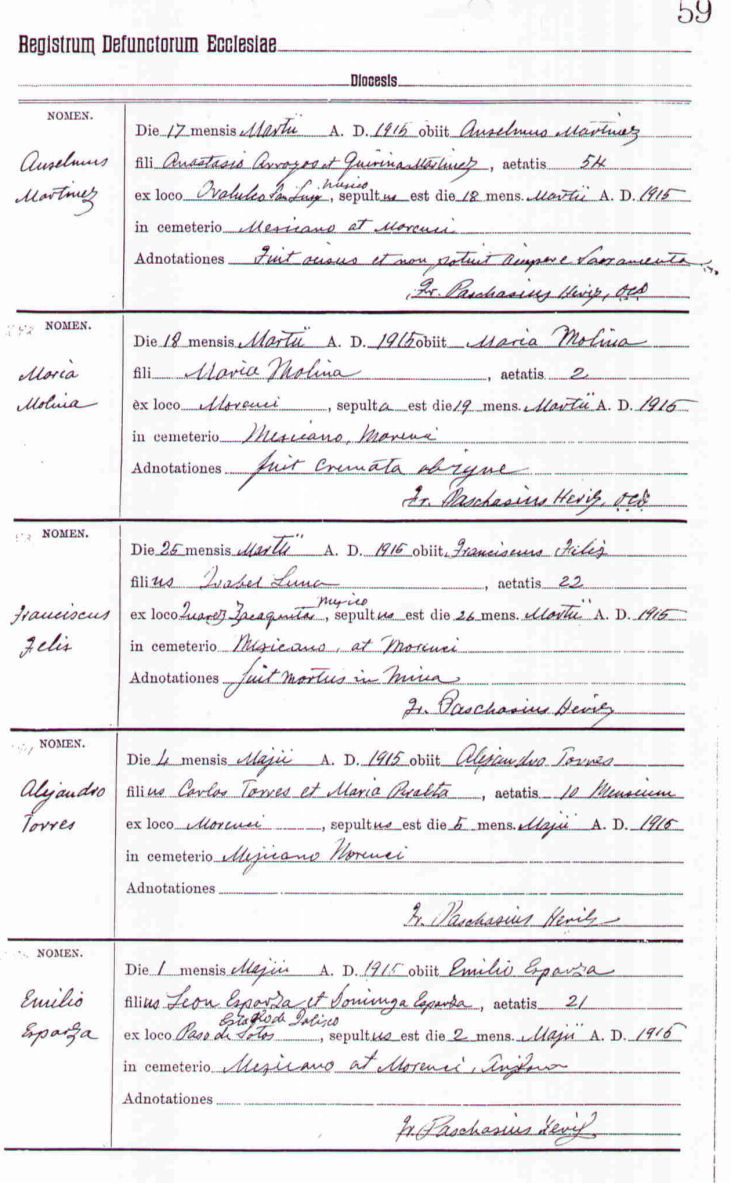 59
Registrum Defunctorum Ecclesiae
Diocesis
NOMEN.
Anselmus
Martinez
Die 17 mensis Martii A. D. 1915 obiit Anselmus Martinez
fili Anastasio Arroyos et Quirina Martinez, aetatis 54
Mexico
ex loco San Luis, sepultus est die 18 mens. Martii A. D. 1915
in cemeterio Mexicano at Morenci
Adnotationes Fuit visus et non potuit recipere Sacramenta
Fr. Paschasius Heriz, OCD
NOMEN.
Maria
Molina
Die 18 mensis Martii A. D. 1915 obiit Maria Molina
fili Maria Molina, aetatis 2
ex loco Morenci, sepulta est die 19 mens. Martii A. D. 1915
in cemeterio Mexicano, Morenci
Adnotationes fuit cremata ab igne
Fr. Paschasius Heriz, OCD
NOMEN.
Franciscus
Felis
Die 25 mensis Martii A. D. 1915 obiit Franciscus Felis
filius Isabel Luna, aetatis 22
Mexico
ex loco Juarez, sepultus est die 26 mens. Martii A. D. 1915
in cemeterio Mexicano, at Morenci
Adnotationes fuit mortus in mina
Fr. Paschasius Heriz
NOMEN.
Alejandro
Torres
Die 4 mensis Majii A. D. 1915 obiit Alejandro Torres
filius Carlos Torres et Maria Peralta, aetatis 10 Mensium
ex loco Morenci, sepultus est die 5 mens. Majii A. D. 1915
in cemeterio Mejicano Morenci
Adnotationes
Fr. Paschasius Heriz
NOMEN.
Emilio
Esparza
Die 1 mensis Majii A. D. 1915 obiit Emilio Esparza
filius Leon Esparza et Dominga Esparza, aetatis 21
Estado de Jalisco
ex loco Paso de Sotos, sepultus est die 2 mens. Majii A. D. 1915
in cemeterio Mexicano at Morenci, Arizona
Adnotationes
Fr. Paschasius Heriz